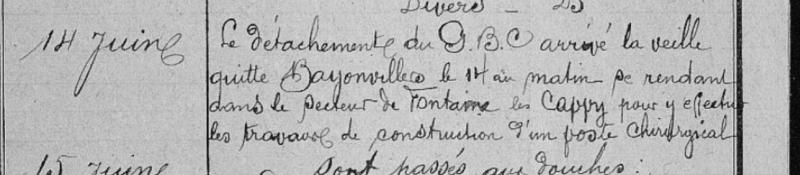 Divers - 25
14 Juin Le détachement du G.B.C arrivé la veille
quitte Bayonvillers le 14 au matin se rendant
dans le secteur de Fontaine les Cappy pour y effectuer
les travaux de construction d'un poste chirurgical
15 Juin sont passés aux douches :